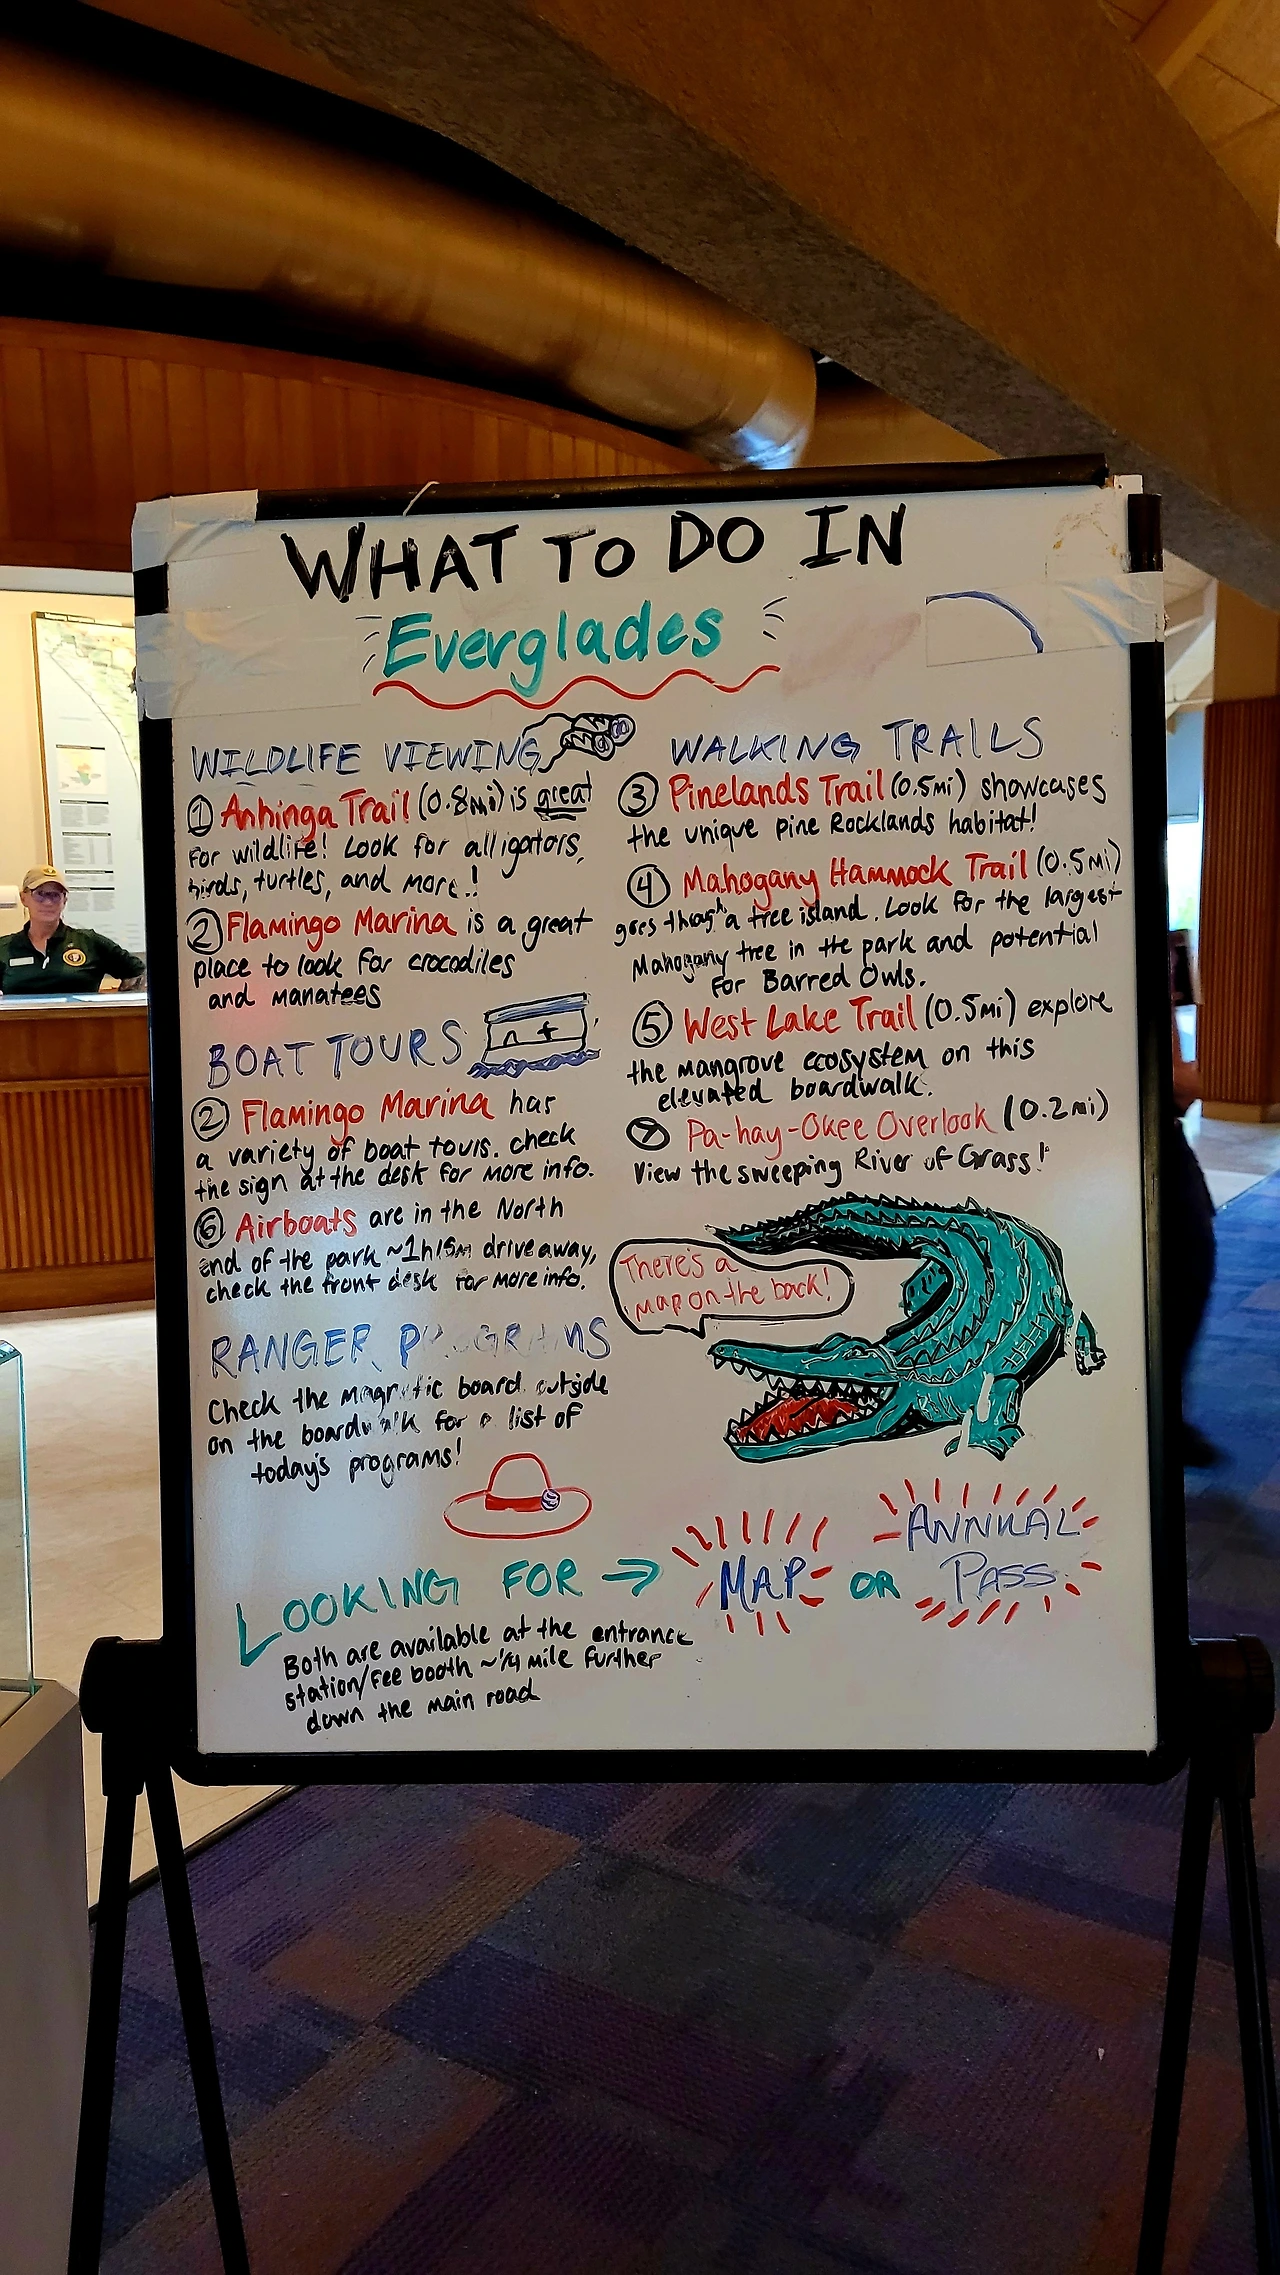 WHAT TO DO IN
Everglades
WILDLIFE VIEWING
① Anhinga Trail (0.8mi) is great
for wildlife! Look for alligators,
birds, turtles, and more!
② Flamingo Marina is a great
place to look for crocodiles
and manatees
BOAT TOURS
② Flamingo Marina has
a variety of boat tours. check
the sign at the desk for more info.
⑥ Airboats are in the North
end of the park ~1h15m drive away,
check the front desk for more info.
RANGER PROGRAMS
Check the magnetic board outside
on the boardwalk for a list of
today's programs!
WALKING TRAILS
③ Pinelands Trail (0.5mi) showcases
the unique pine Rocklands habitat!
④ Mahogany Hammock Trail (0.5mi)
goes though a tree island. Look for the largest
Mahogany tree in the park and potential
for Barred Owls.
⑤ West Lake Trail (0.5mi) explore
the mangrove ecosystem on this
elevated boardwalk.
⑦ Pa-hay-Okee Overlook (0.2mi)
View the sweeping River of Grass!
There's a
map on the back!
LOOKING FOR → MAP OR ANNUAL
PASS
Both are available at the entrance
station/fee booth ~1/4 mile further
down the main road